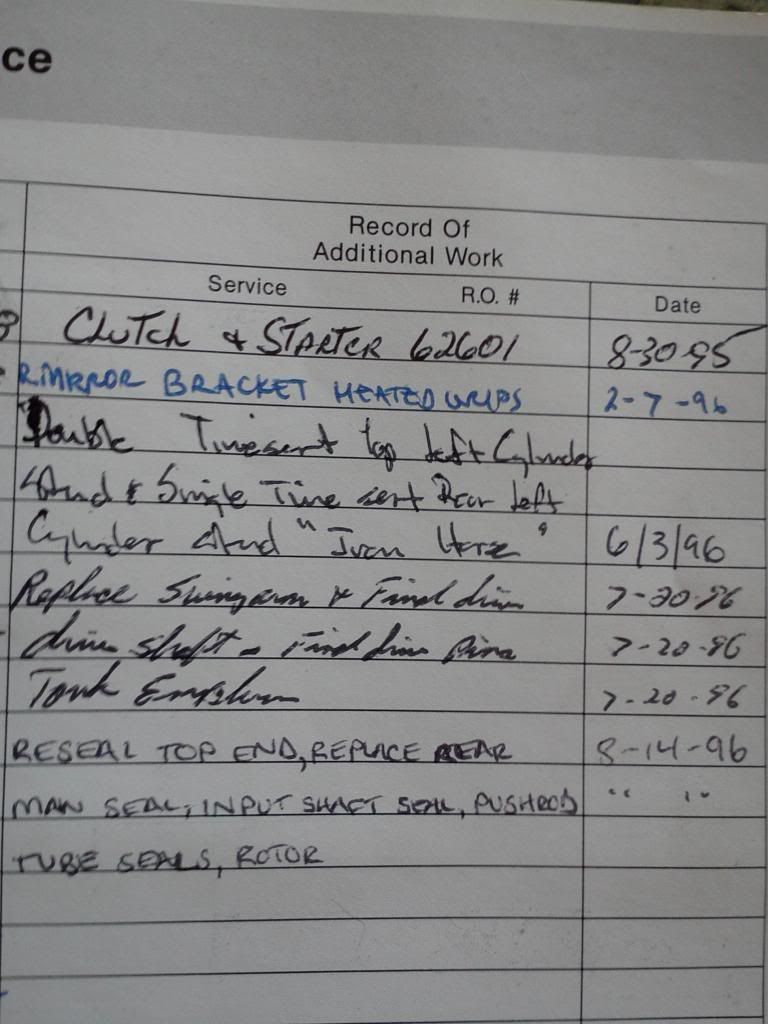 ce
Record Of
Additional Work
Service R.O. # Date
Clutch & STARTER 62601 8-30-95
R.MIRROR BRACKET HEATED GRIPS 2-7-96
Double Timesert top left Cylinder
Stud & Single Time sert Rear left
Cylinder Stud "Iron Horse" 6/3/96
Replace Swingarm & Final drive 7-20-96
drive shaft - Final drive 7-20-96
Tank Emblem 7-20-96
RESEAL TOP END, REPLACE REAR 8-14-96
MAIN SEAL, INPUT SHAFT SEAL, PUSHROD " "
TUBE SEALS, ROTOR